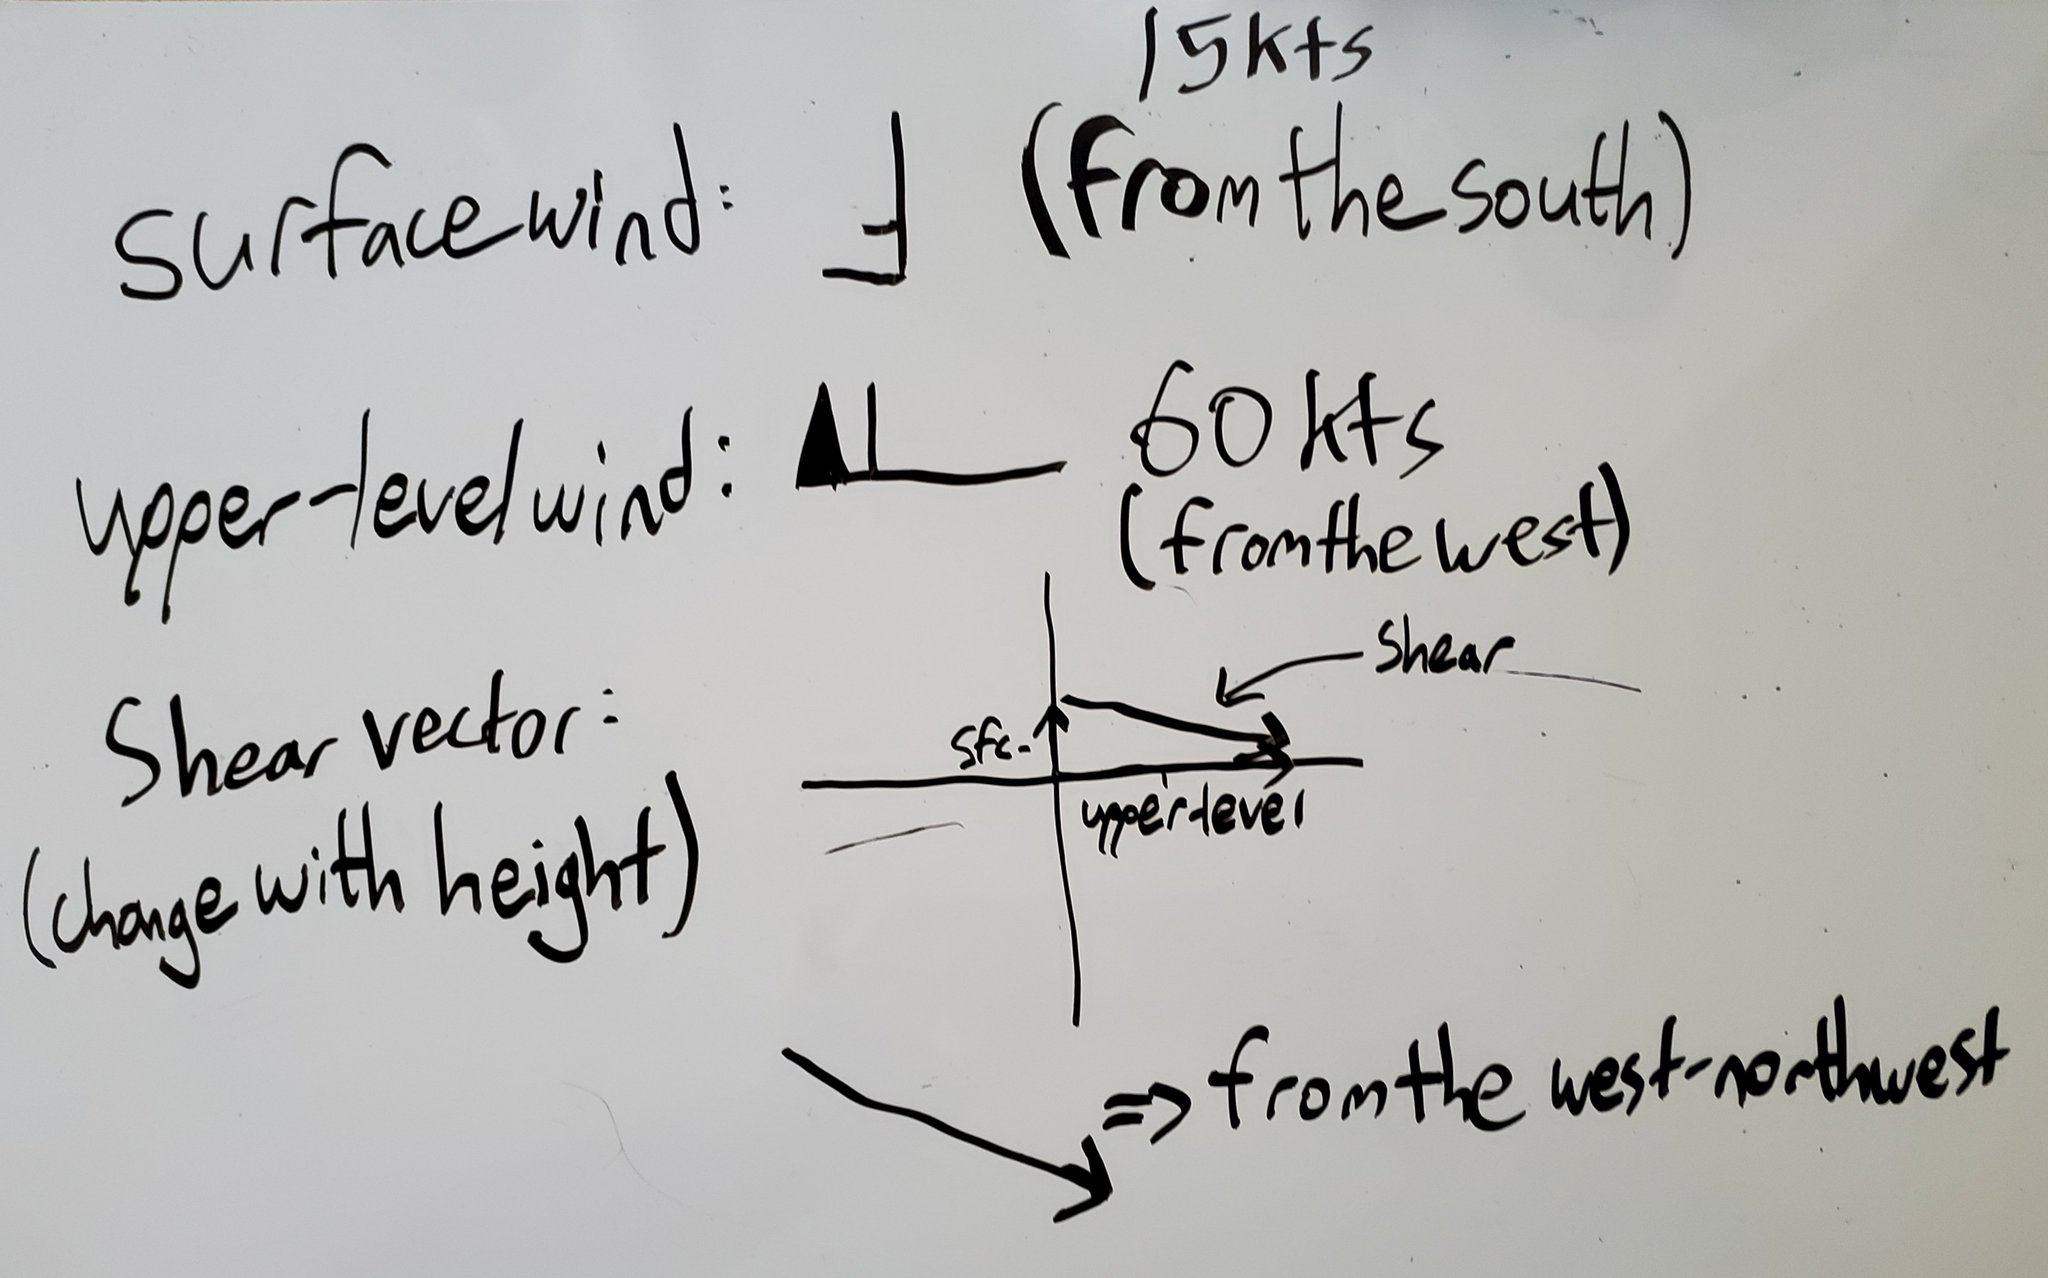 15kts
Surface wind: (from the south)
upper-level wind: 60 kts
(from the west)
Shear
Shear vector:
sfc.
upper-level
(change with height)
=> from the west-northwest